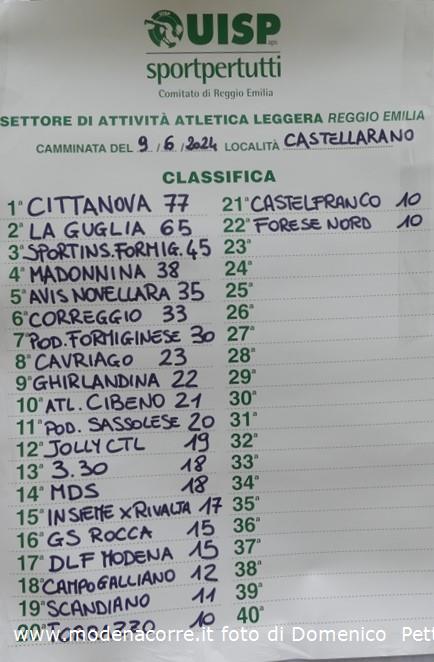 UISP aps
sportpertutti
Comitato di Reggio Emilia
SETTORE DI ATTIVITÀ ATLETICA LEGGERA REGGIO EMILIA
CAMMINATA DEL 9/6/2024 LOCALITÀ CASTELLARANO
CLASSIFICA
1ª CITTANOVA 77
2ª LA GUGLIA 65
3ª SPORTINS.FORMIG. 45
4ª MADONNINA 38
5ª AVIS NOVELLARA 35
6ª CORREGGIO 33
7ª POD. FORMIGINESE 30
8ª CAVRIAGO 23
9ª GHIRLANDINA 22
10ª ATL. CIBENO 21
11ª POD. SASSOLESE 20
12ª JOLLY CTL 19
13ª 3.30 18
14ª MDS 18
15ª INSIEME X RIVALTA 17
16ª GS ROCCA 15
17ª DLF MODENA 15
18ª CAMPOGALLIANO 12
19ª SCANDIANO 11
20ª 10
21ª CASTELFRANCO 10
22ª FORESE NORD 10
23ª
24ª
25ª
26ª
27ª
28ª
29ª
30ª
31ª
32ª
33ª
34ª
35ª
36ª
37ª
38ª
39ª
40ª
www.modenacorre.it foto di Domenico Pett